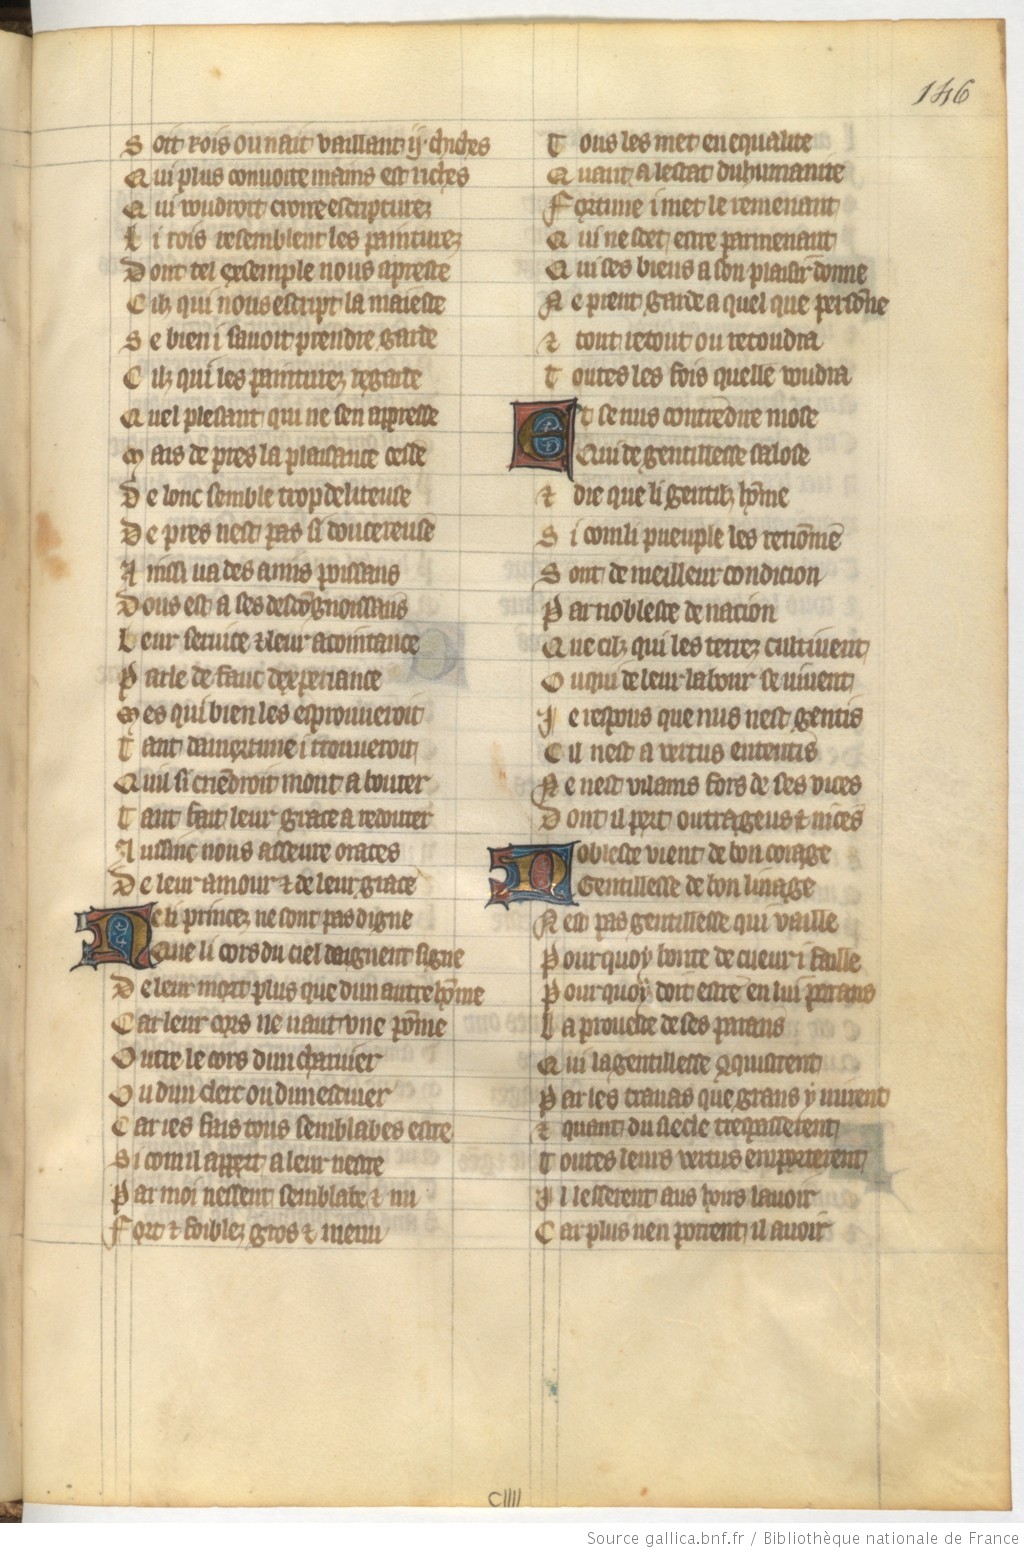 146
Soit rois ou nait vaillant ij chiches
Qui plus convoite mains est riches
Qui voudroit croire escripturez
Li rois resemblent les painturez
Dont tel exsemple nous apreste
Cilz qui nous escript la maieste
Se bien i savoit prendre garde
Cilz qui les painturez regarde
Quel plesant qui ne sen appresse
Mais de pres la plaisance cesse
De lonc semble trop deliteuse
De pres nest pas si doucereuse
Ainssi va des amis poissans
Dous est a ses descognoissans
Leur service & leur acointance
Par le defaut dexperiance
Mes qui bien les esprouveroit
Tant damertume i trouveroit
Quil si criendroit mont a bouter
Tant fait leur grace a redouter
Aussinc nous asseure oraces
De leur amour & de leur grace
Ne li princez ne sont pas digne
Que li cors du ciel daignent signe
De leur mort plus que dun autre home
Car leur cors ne vaut vne pome
Outre le cors dun charuier
Ou dun clerc ou dun escuier
Car ies fais tous semblabes estre
Si com il appert a leur nestre
Par moi nessent semblable & nu
Fort & foiblez gros & menu
Tous les met en equalite
Quant a lestat dhumanite
Fortune i met le remenant
Qui ne scet estre parmenant
Qui ses biens a son plaisir donne
Ne prent garde a quel que persone
& tout retout ou retoudra
Toutes les fois quelle voudra
Et se nus contredire mose
Qui de gentillesse salose
& die que li gentilz home
Si com li pueuple les renome
Sont de meilleur condicion
Par noblesse de nacion
Que cilz qui les terrez cultivent
Ou qui de leur labour se vivent
Je respons que nus nest gentis
Cil nest a vertus ententis
Ne nest vilains fors de ses vices
Dont il pert outrageus & nices
Noblesse vient de bon corage
Gentillesse de bon linage
Nest pas gentillesse qui vaille
Pour quoy bonte de cueur i faille
Pour quoy doit estre en lui parans
La prouesse de ses parans
Qui la gentillesse conquistrent
Par les travas que grans y mirent
& quant du siecle trepasserent
Toutes leurs vertus emporterent
Il lesserent aus hoirs lavoir
Car plus nen porent il avoir
CIIII
Source gallica.bnf.fr / Bibliothèque nationale de France